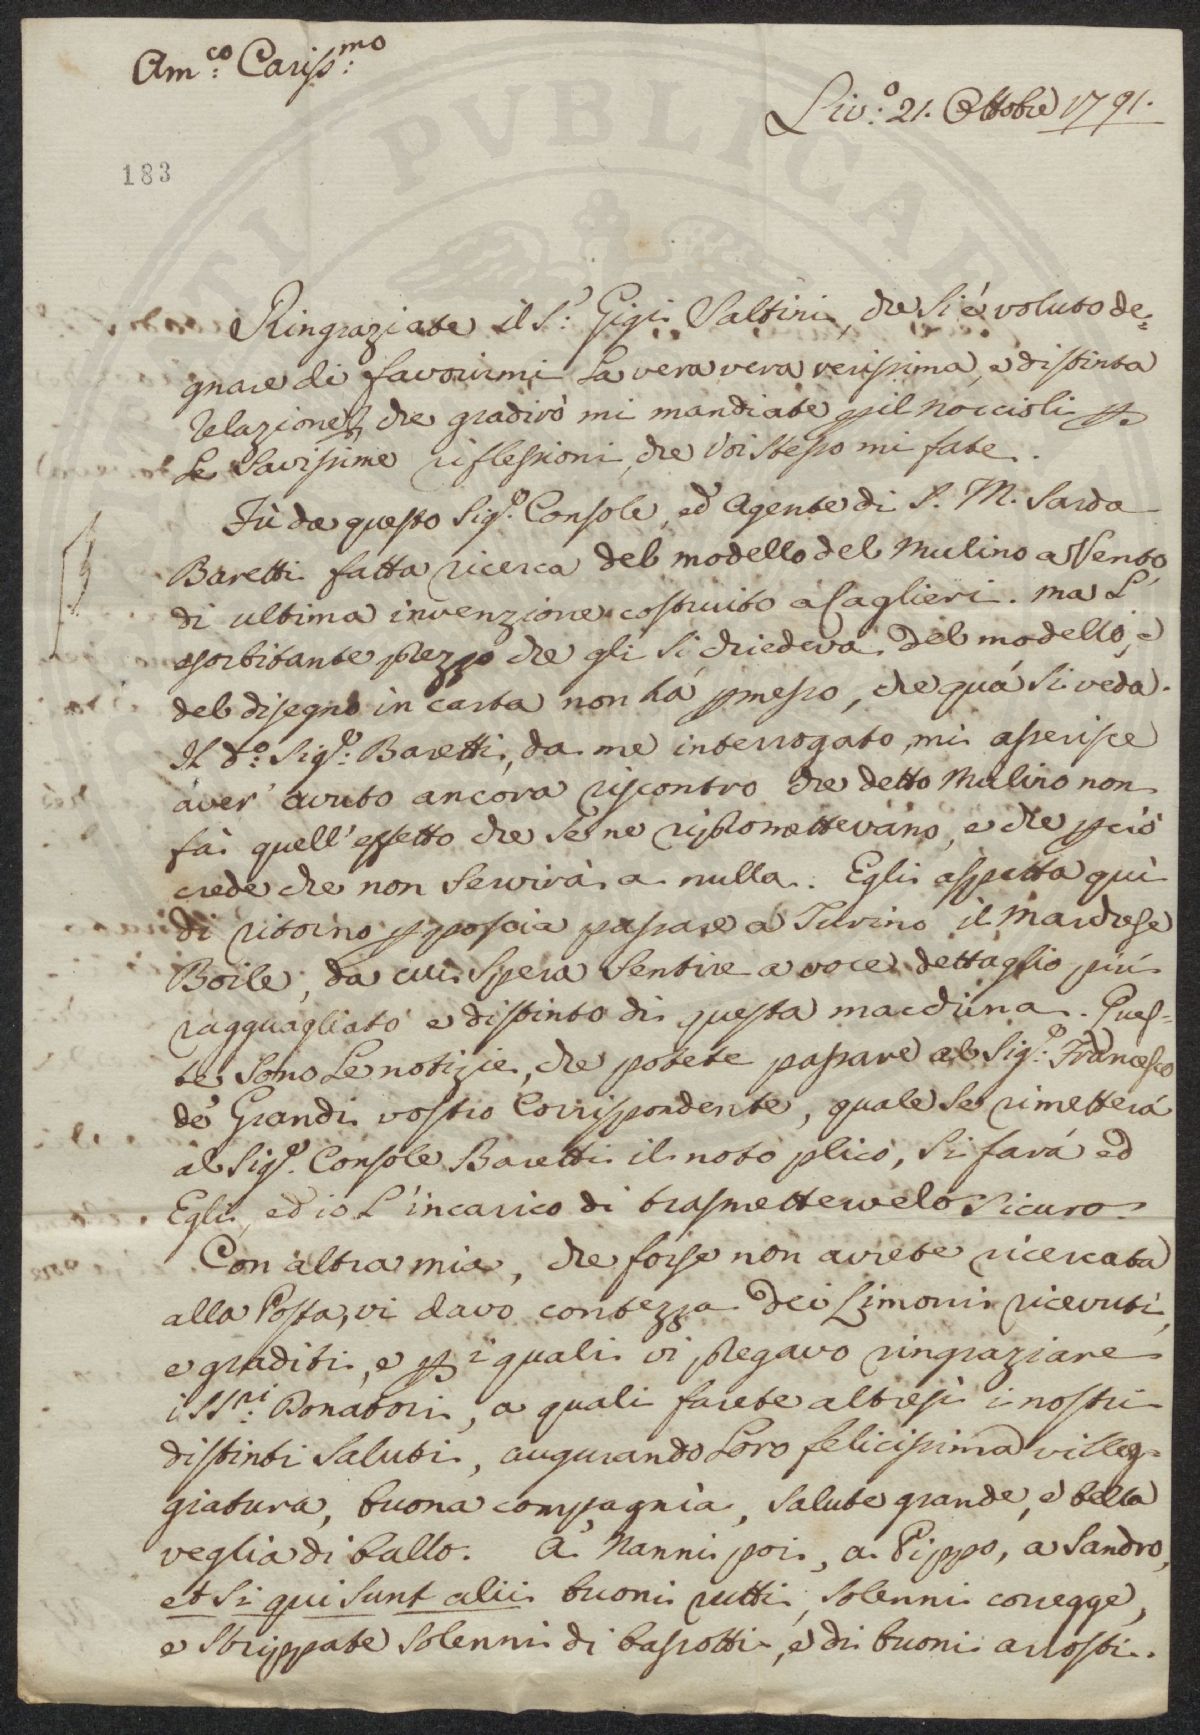 Am.co Cariss.mo
Liv.o 21. Ottobre 1791.
183
Ringraziate il S.r Gigi Saltini, che si è voluto de=
gnare di favorirmi la vera vera verissima, e distinta
relazione, che gradirò mi mandiate p il Noccioli p
le savissime riflessioni, che Voi stesso mi fate.
Fù da questo Sig.e Console, ed Agente di S. M. Sarda
Baretti fatta ricerca del modello del Mulino a Vento
di ultima invenzione costruito a Caglieri. ma l'
esorbitante prezzo che gli si chiedeva del modello, e
del disegno in carta non há pmesso, che quá si veda.
Il d.o Sig.e Baretti, da me interrogato, mi asserisce
aver' avuto ancora riscontro che detto Mulino non
fà quell' effetto che se ne ripromettevano, e che pciò
crede che non servirà a nulla. Egli aspetta quì
di ritorno p poscia passare a Turino il Marchese
Boile, da cui spera sentire a voce dettaglio più
ragguagliato e distinto di questa macchina. Ques=
te sono le notizie, che potete passare al Sig.e Francesco
de' Grandi vostro Corrispondente, quale se rimetterá
al Sig.e Console Baretti il noto plico, si fará ed
Egli, ed io l'incarico di trasmettervelo sicuro.
Con altra mia, che forse non avrete ricercata
alla Posta, vi davo contezza dei Limoni ricevuti,
e graditi, e p i quali vi pregavo ringraziare
i SS.ri Bonatori, a quali farete altresì i nostri
distinti saluti, augurando Loro felicissima villeg=
giatura, buona compagnìa, salute grande, e bella
veglia di ballo. A Nanni poi, a Pippo, a Sandro,
et si qui sunt alii buoni rutti, solenni coregge,
e strippate solenni di bassotti, e di buoni arrosti.